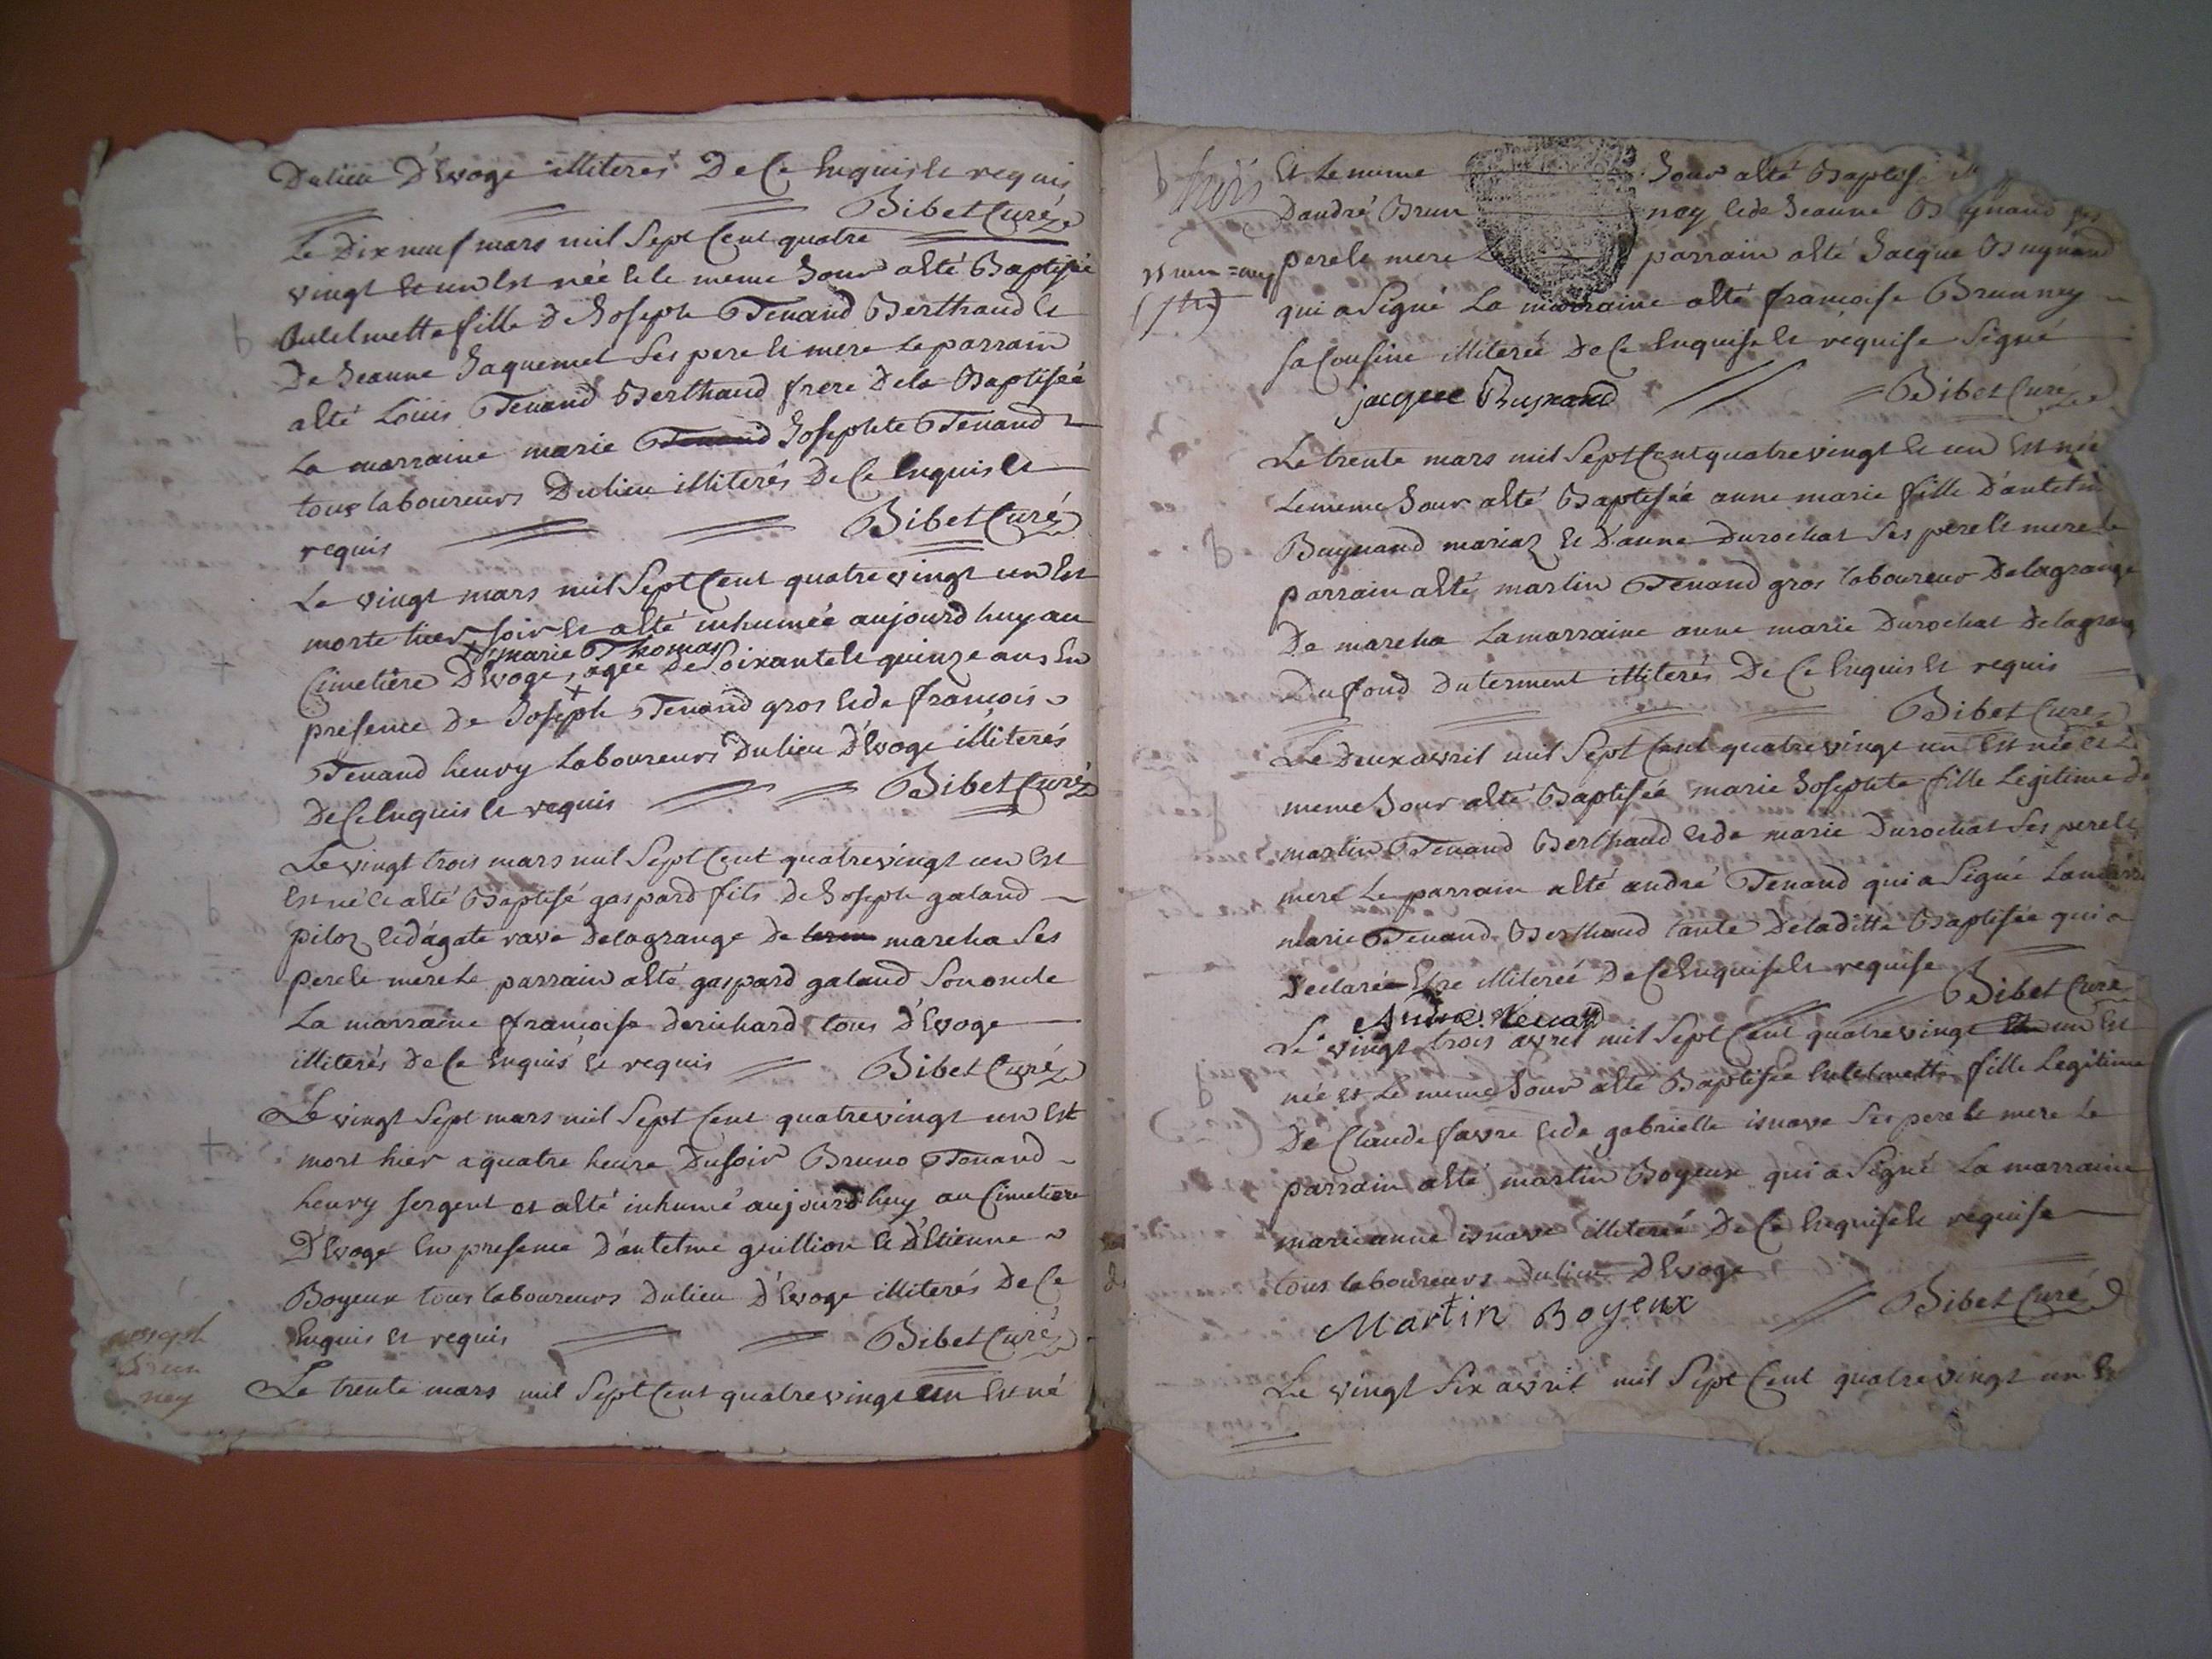 Dulieu D'Evoge illiterés De Ce Enquis et requis
Bibet Curé
Le Dix neuf mars mil Sept Cent quatre
vingt et un Est née et le meme Jour atté Baptisée
fille De Joseph Tenand Berthand et
De Jeanne Jaquemet Ses pere et mere Le parrain
atté Loüis Tenand Berthand frere Dela Baptisée
La marraine marie Tenand Josephte Tenand
tous laboureurs Dulieu illiterés De Ce Enquis et
requis
Bibet Curé
Le vingt mars mil Sept Cent quatre vingt un Est
morte hier soir et atté inhumée aujourd huy au
marie Thomas
Cimetière D'Evoge, agée De Soixante et quinze ans En
presence De Joseph Tenand gros et de francois
Tenand henry Laboureurs Dulieu D'Evoge illiterés
De Ce Enquis et requis
Bibet Curé
Le vingt trois mars mil Sept Cent quatre vingt un Est
Est né et atté Baptisé gaspard fils De Joseph galand
piloz et d'agate rave Delagrange De mareha Ses
pere et mere Le parrain atté gaspard galand Son oncle
La marraine francoise Derichard tous D'Evoge
illiterés De Ce Enquis et requis
Bibet Curé
Le vingt Sept mars mil Sept Cent quatre vingt un Est
mort hier a quatre heure Dusoir Bruno Tenand
henry sergent et atté inhumé aujourd huy au Cimetiere
D'Evoge En presence D'antelme guillion et D'Etienne
Boyeux tous laboureurs Dulieu D'Evoge illiterés De Ce
Enquis et requis
Bibet Curé
joseph
Brun
ney
Le trente mars mil Sept Cent quatre vingt un Est né
trois
Et Le meme Jour atté Baptisé
D'andré Brun ney et de Jeanne Bugnand ses
pere et mere Le parrain atté Jacque Bugnand
qui a Signé La marraine atté francoise Brunney
sa Cousine illiterée De Ce Enquise et requise Signé
jacque Bugnand
Bibet Curé
Le trente mars mil Sept Cent quatre vingt et un Est née
Le meme Jour atté Baptisée anne marie fille D'antelme
Bugnand mariaz et D'anne Durochat Ses pere et mere Le
parrain atté martin Tenand gros laboureur Delagrange
De mareha La marraine anne marie Durochat Delagrange
Du fond Duterment illiterés De Ce Enquis et requis
Bibet Curé
Le Deux avril mil Sept Cent quatre vingt un Est née et Le
meme Jour atté Baptisée marie Josephte fille Legitime De
martin Tenand Berthand et de marie Durochat Ses pere et
mere Le parrain atté andré Tenand qui a Signé La marraine
marie Tenand Berthand tante Deladitte Baptisée qui a
Declarée Etre illiterée De Ce Enquise et requise
Bibet Curé
André Tenand
Le vingt trois avril mil Sept Cent quatre vingt un Est
née et Le meme Jour atté Baptisée fille Legitime
De Claude favre et de gabrielle isnave Ses pere et mere Le
parrain atté martin Boyeux qui a Signé La marraine
marie anne isnave illiterée De Ce Enquise et requise
tous laboureurs Dulieu D'Evoge
Martin Boyeux
Bibet Curé
Le vingt Six avril mil Sept Cent quatre vingt un Est